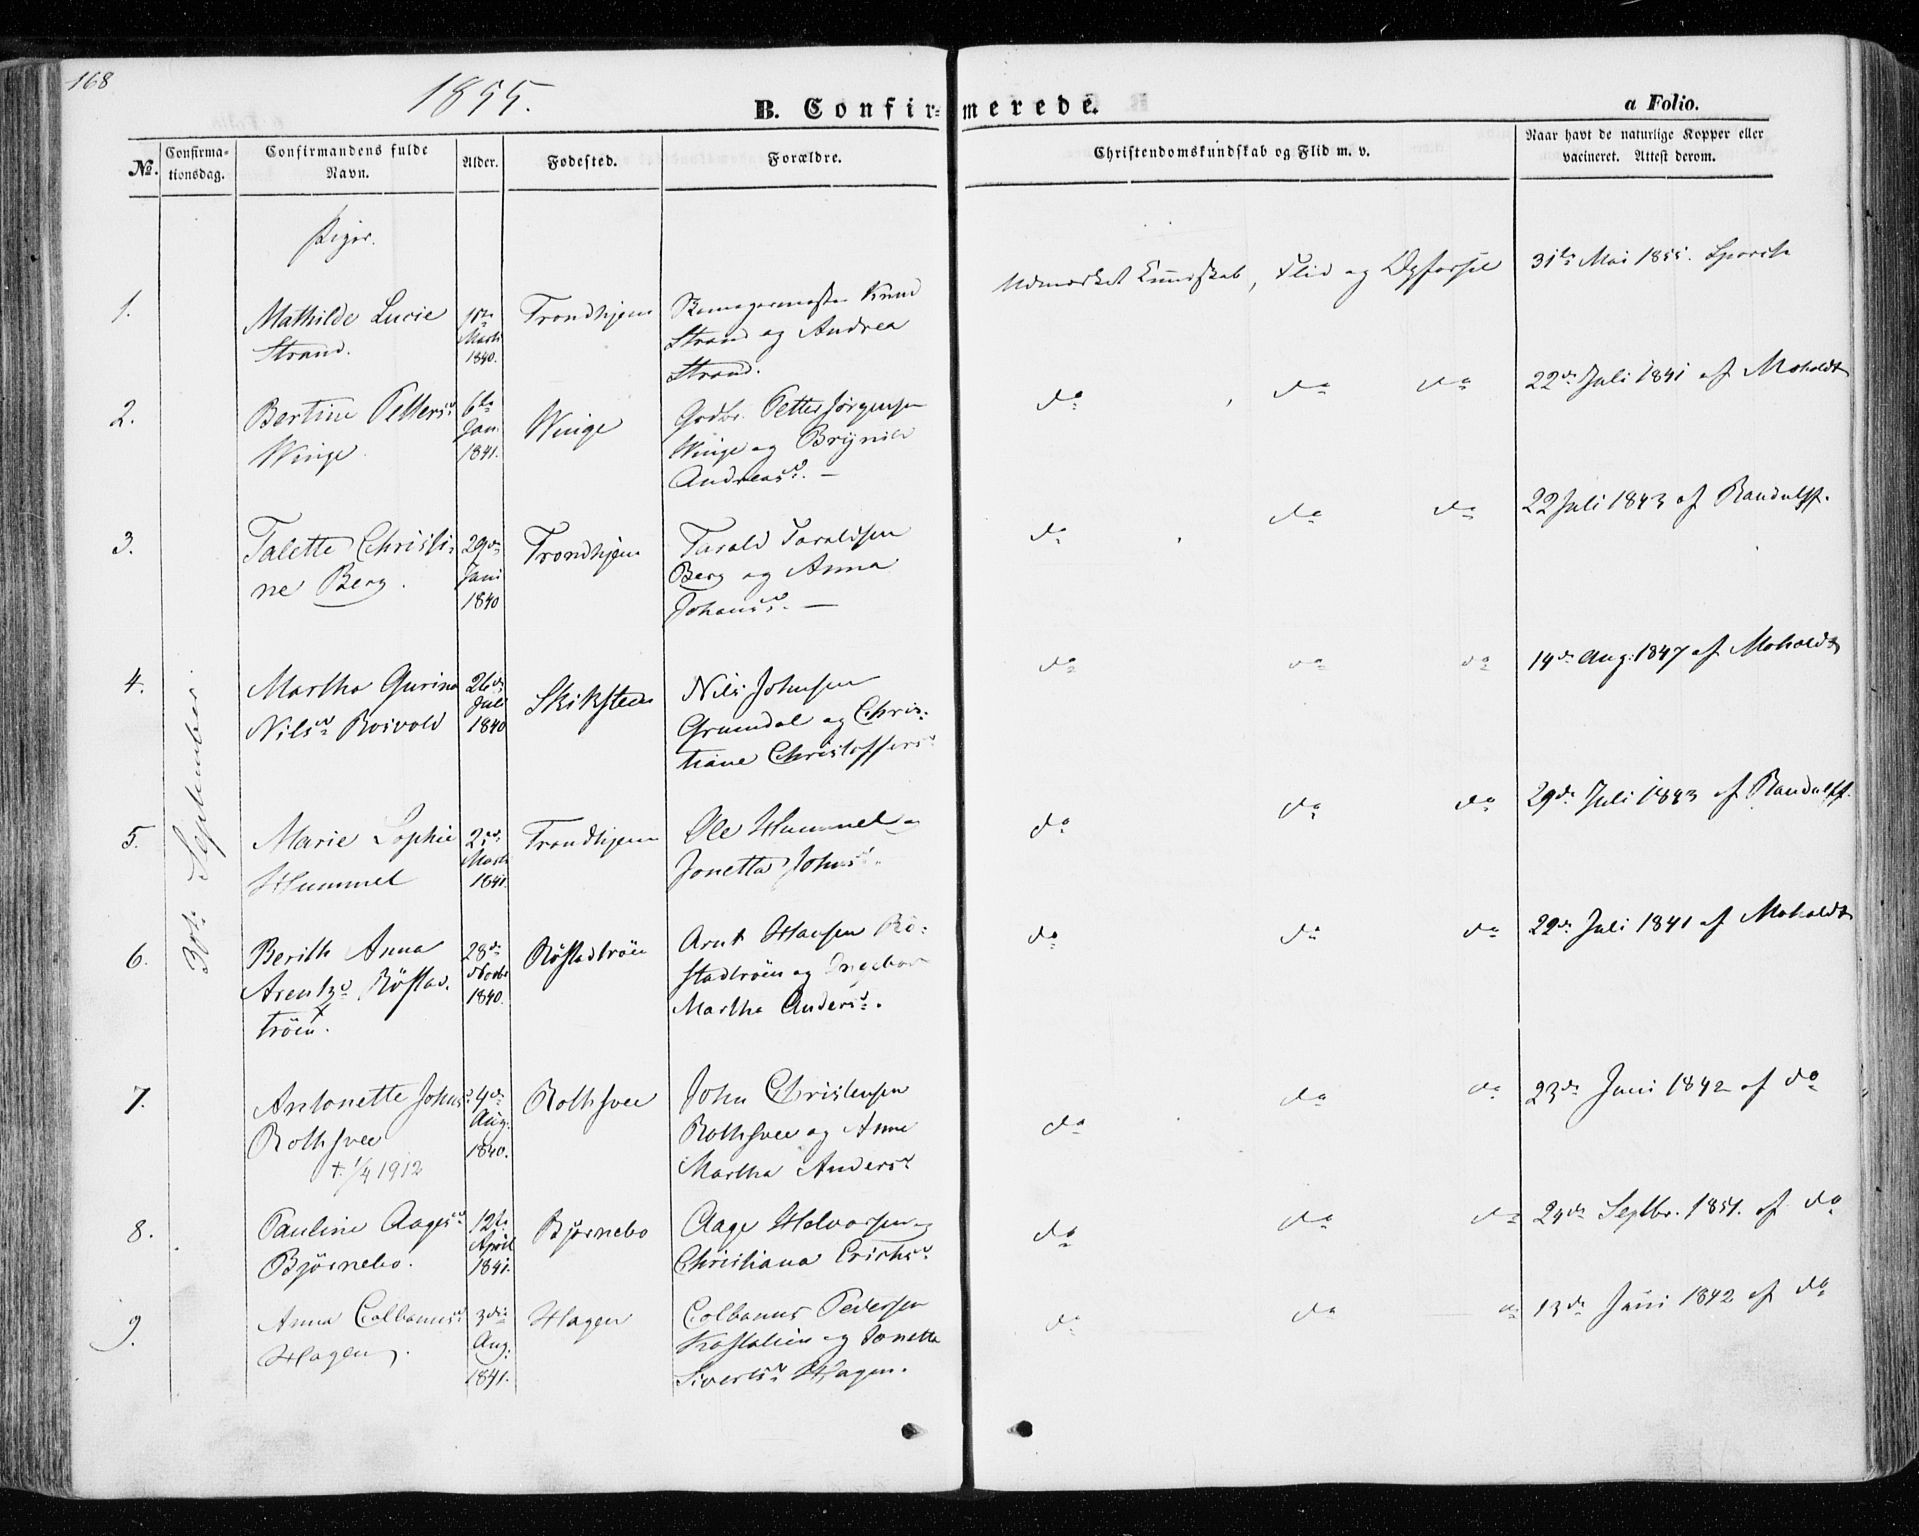 168
1855.
B. Confirmerede.
a Folio.
No.
Confirma-
tionsdag.
Confirmandens fulde
Navn.
Alder.
Fødested.
Forældre.
Christendomskundskab og Flid m. v.
Naar havt de naturlige Kopper eller
vacineret. Attest derom.
Piger.
30te September
1.
Mathilde Lucie
Strand.
Marts
1840.
Trondhjem
Knud
Strand og Andrea
Strand.
Udmærket Kundskab, Flid og Opførsel
31te Mai 1855.
2.
Bertine Petters
Winge.
6te
Jan.
1841.
Winge
Petter Jörgensen
Winge og Brynild
Andreasd. —
do do do
22de Juli 1841 af Moholdt
3.
Talette Christi-
ne Berg.
29de
Juni
1840
Trondhjem
Tarald Taraldsen
Berg og Anna
Johansd. —
do do do
22 Juli 1843 af Randulff.
4.
Martha Gurina
Nilsd Rosvold
26de
Juli
1840
Skiksteen
Nils Johnsen
Grundal og Chris-
tiane Christoffersd
do do do
14de Aug. 1847 af Moholdt
5.
Marie Sophie
Hummel
Marts
1841.
Trondhjem
Ole Hummel og
Jonetta Johnsd.
do do do
29de Juli 1843 af Randulff.
6.
Berith Anna
Arentzd Röstad-
tröen.
28de
Novbr
1840.
Röstadtröen
Arnt Hansen Rö-
stadtröen og Ingebor
Martha Andersd.
do do do
22de Juli 1841 af Moholdt
7.
Antonette Johnsd
Rothsvee
+ 1/4 1912
4de
Aug.
1840.
Rothsvee
John Christensen
Rothsvee og Anne
Martha Andersd
do do do
23de Juni 1842 af do
8.
Pauline Aagesd
Bjørnebo.
12te
April
1841.
Bjørnebo
Aage Halvorsen og
Christiana Erichsd
do do do
24de Septbr. 1851. af do
9.
Anna Colbanusd
Hagen.
3die
Aug.
1841.
Hagen
Colbanus Pedersen
og Jonetta
Sivertsd Hagen.
do do do
13de Juni 1842 af do